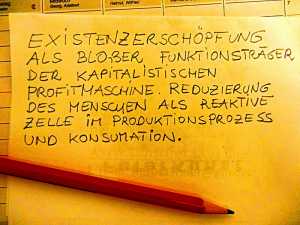 EXISTENZERSCHÖPFUNG
ALS BLOßER FUNKTIONSTRÄGER
DER KAPITALISTISCHEN
PROFITMASCHINE. REDUZIERUNG
DES MENSCHEN ALS REAKTIVE
ZELLE IM PRODUKTIONSPROZESS
UND KONSUMATION.